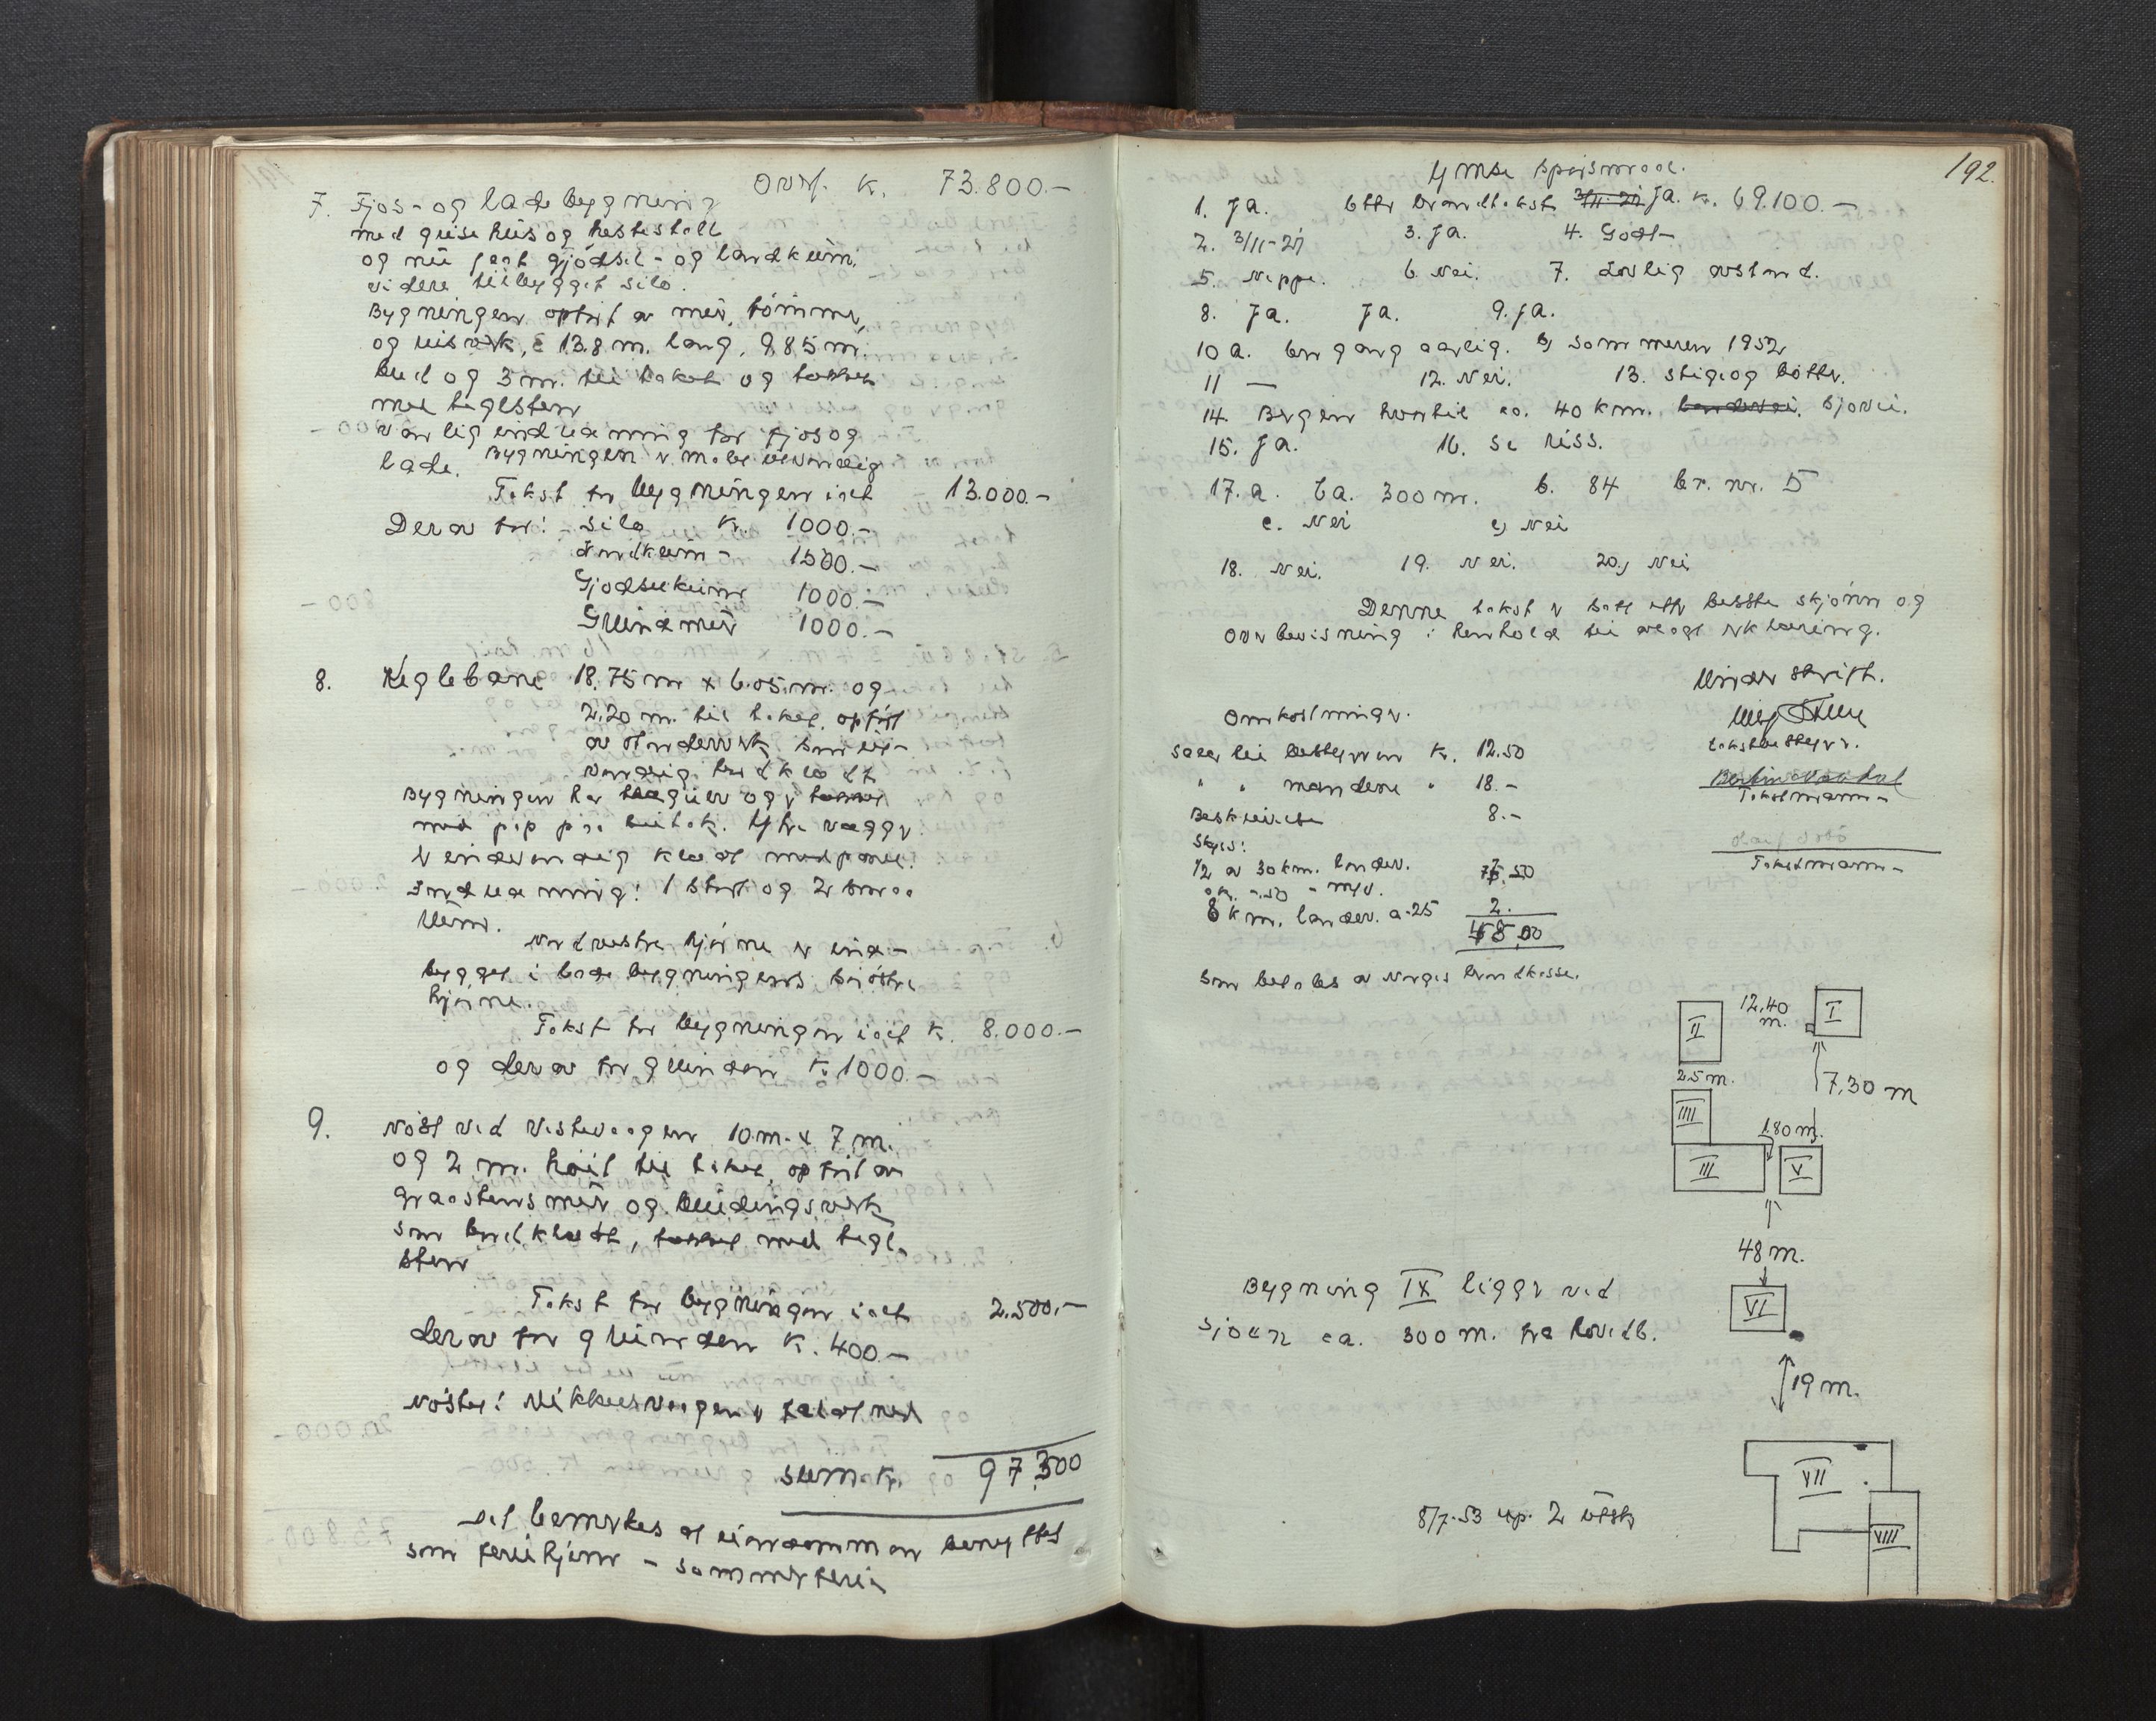 Overf. K. 73.800.-
7. Fjos- og ladebygning
med grisehus og hestestall
og ny jagt gjødsel- og landkum.
videre tilbygget silo.
Bygningen opført av mur, tømmer,
og uisverk, 13.8 m. lang, 9.85 m.
bred og 3 m. til taket og tækket
med teglsten
vanlig indredning for fjos og
lade. Bygningen er malt utvendig
Takst for bygningen ialt 13.000.-
Derav for: silo Kr. 1000.-
Landkum - 1500.-
Gjødselkum 1000.-
Grundmur 1000.-
8. Keglebane 18.75 m x 6.05 m. og
2.20 m. til taket, opført
av stenderverk som ut-
vendig bordklædt
Bygningen har trægulv og er tækket
med pap paa sutak. Ytre vægger
er indvendig klædt med panel.
Indredning: 1 stort og 2 smaa
rum.
Nordvestre hjørne er ind-
bygget i ladebygningens søstre
hjørne.
Takst for bygningen ialt K. 8.000.-
og derav for grunden K. 1000.-
9. Nøst ved Vestevaagen 10 m. x 7 m.
og 2 m. høit til taket, opført av
graastensmur og bindingsverk
som bordklædt, tækket med tegl-
sten
Takst for bygningen ialt 2.500.-
derav for grunden K. 400.-
Nøstet i Vikkesvaagen er faldt ned
Sum. Kr. 97.300
Det bemerkes at eiendommen benyttes
som feriehjem - sommerferie
192.
Ymse spørsmaal.
1. Ja. Efter brandtakst 3/11-27 Ja. K. 69.100.-
2. 3/11-27 3. Ja. 4. Godt-
5. Neppe. 6. Nei. 7. Lovlig avstand.
8. Ja. Ja. 9. Ja.
10 a. En gang aarlig. b) sommeren 1952
11 — 12. Nei. 13. Stige og bøtter.
14. Bergen hvortil ca. 40 km. landevei. Sjøvei.
15. Ja. 16. Se riss.
17. a. Ca. 300 m. b. 84 br. nr. 5
c. Nei e) Nei
18. Nei. 19. Nei. 20) Nei
Denne takst er sat efter bedste skjønn og
overbevisning i henhold til avlagt erklæring.
Underskrift.
takstbestyrer.
Takstmann-
Olaf
Takstmann-
Omkostninger.
Salær til bestyreren K. 12.50
" " mændene " 18.-
Beskrivelse 8.-
Skyss:
1/2 av 30 km. landev. 7.50
a K. -.50 = m/v.
8 km. landev. a -25 2.
48,00
som betales av Norges Brandkasse.
I
II
12.40 m.
2.5 m.
7.30 m
IIII
1.80 m.
III
V
48 m.
VI
19 m.
VII
VIII
Bygning IX ligger ved
sjøen ca. 300 m. fra hovedb.
8/7-53 exp. 2 utskr